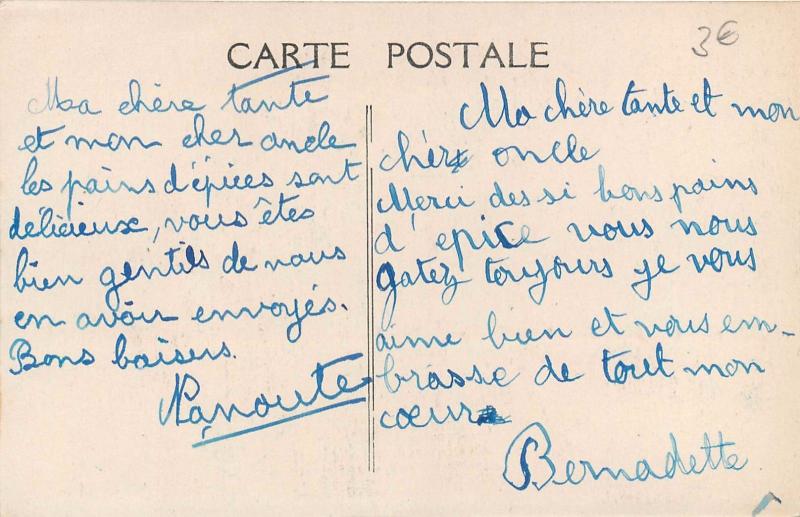 3€
CARTE POSTALE
Ma chère tante
et mon cher oncle
les pains d'épices sont
délicieux, vous êtes
bien gentils de nous
en avoir envoyés.
Bons baisers.
Nanoute
Ma chère tante et mon
chèr oncle
Merci des si bons pains
d'epice vous nous
gatez toujours je vous
aime bien et vous em-
brasse de tout mon
cœur
Bernadette